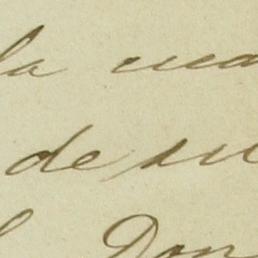 la cua
de su
Don